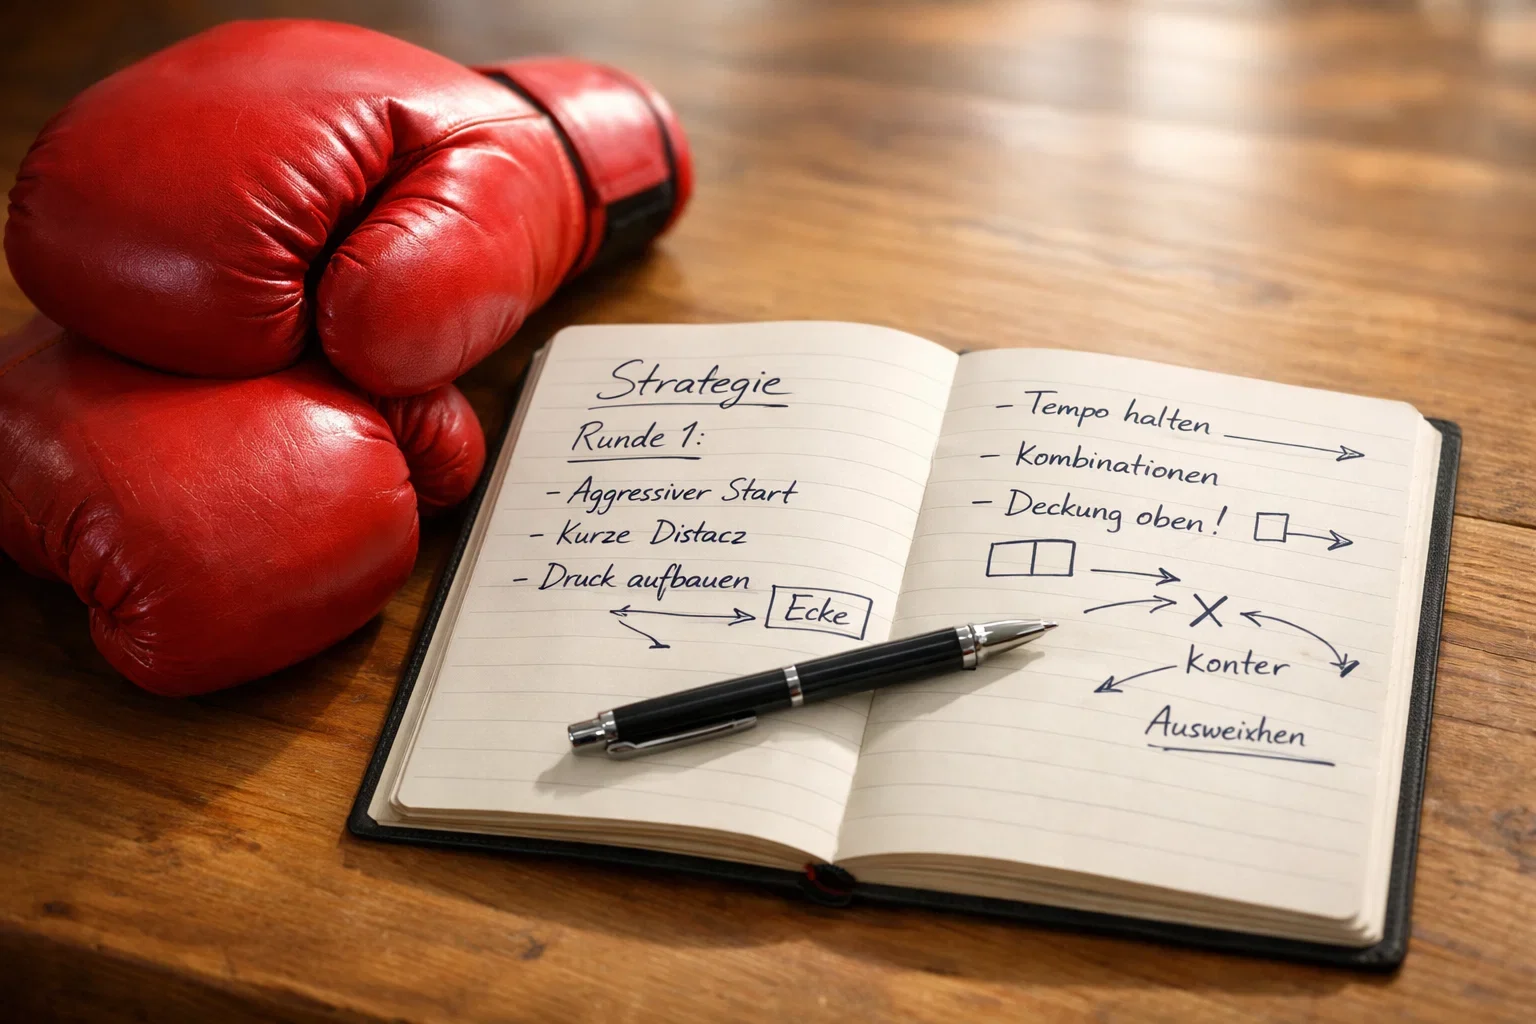 Strategie
Runde 1:
- Aggressiver Start
- Kurze Distacz
- Druck aufbauen
Ecke
- Tempo halten
- Kombinationen
- Deckung oben!
X
Konter
Ausweixhen